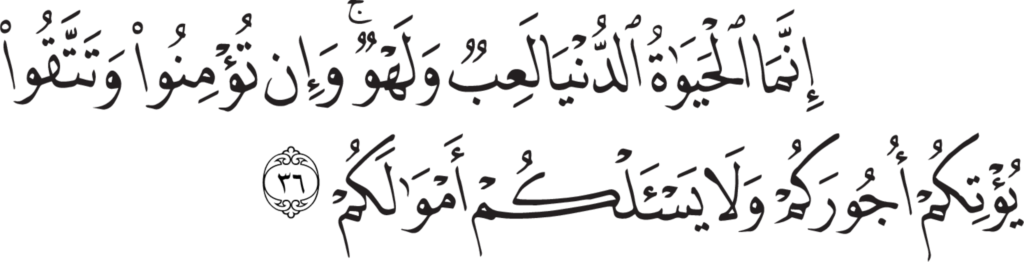 إِنَّمَا ٱلْحَيَوٰةُ ٱلدُّنْيَا لَعِبٌ وَلَهْوٌ ۚ وَإِن تُؤْمِنُوا۟ وَتَتَّقُوا۟
يُؤْتِكُمْ أُجُورَكُمْ وَلَا يَسْـَٔلْكُمْ أَمْوَٰلَكُمْ ٣٦